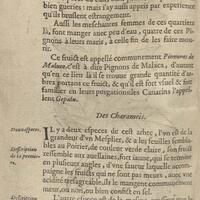 bien gueries: mais i'ay aussi appris par experience
qu'ils bruslent estrangement.
Aussi les meschantes femmes de ces quartiers
là, font manger auec peu d'eau, quatre de ces Pi-
gnons à leurs maris, à celle fin de les faire mou-
rir.
Ce fruict est appellé communement Pinneures de
Maluco, c'est à dire Pignons de Maluca, d'autant
qu'en ce lieu là il se trouue grande quantité d'ar-
bres portant ce fruict, & qu'il est fort vsuel & fort
familier en leurs purgations: les Canarins l'appel-
lent Gepalu.
Des Charameis.
Deux especes.
IL y a deux especes de cest arbre, l'vn est de la
grandeur d'vn Mesplier, & a les fueilles sembla-
Description de la premiere.
bles au Poirier, de couleur verde claire, son fruict
ressemble aux auellaines, fort iaune, qui se termine
en plusieurs angles, d'vne façon plus iolie que
les fruicts qui ne sont pas meurs, auec vne
acidité desagreable: ils le mangent communement
meur, ou non, ou bien confit en sel.
Description
L'autre espece est de la